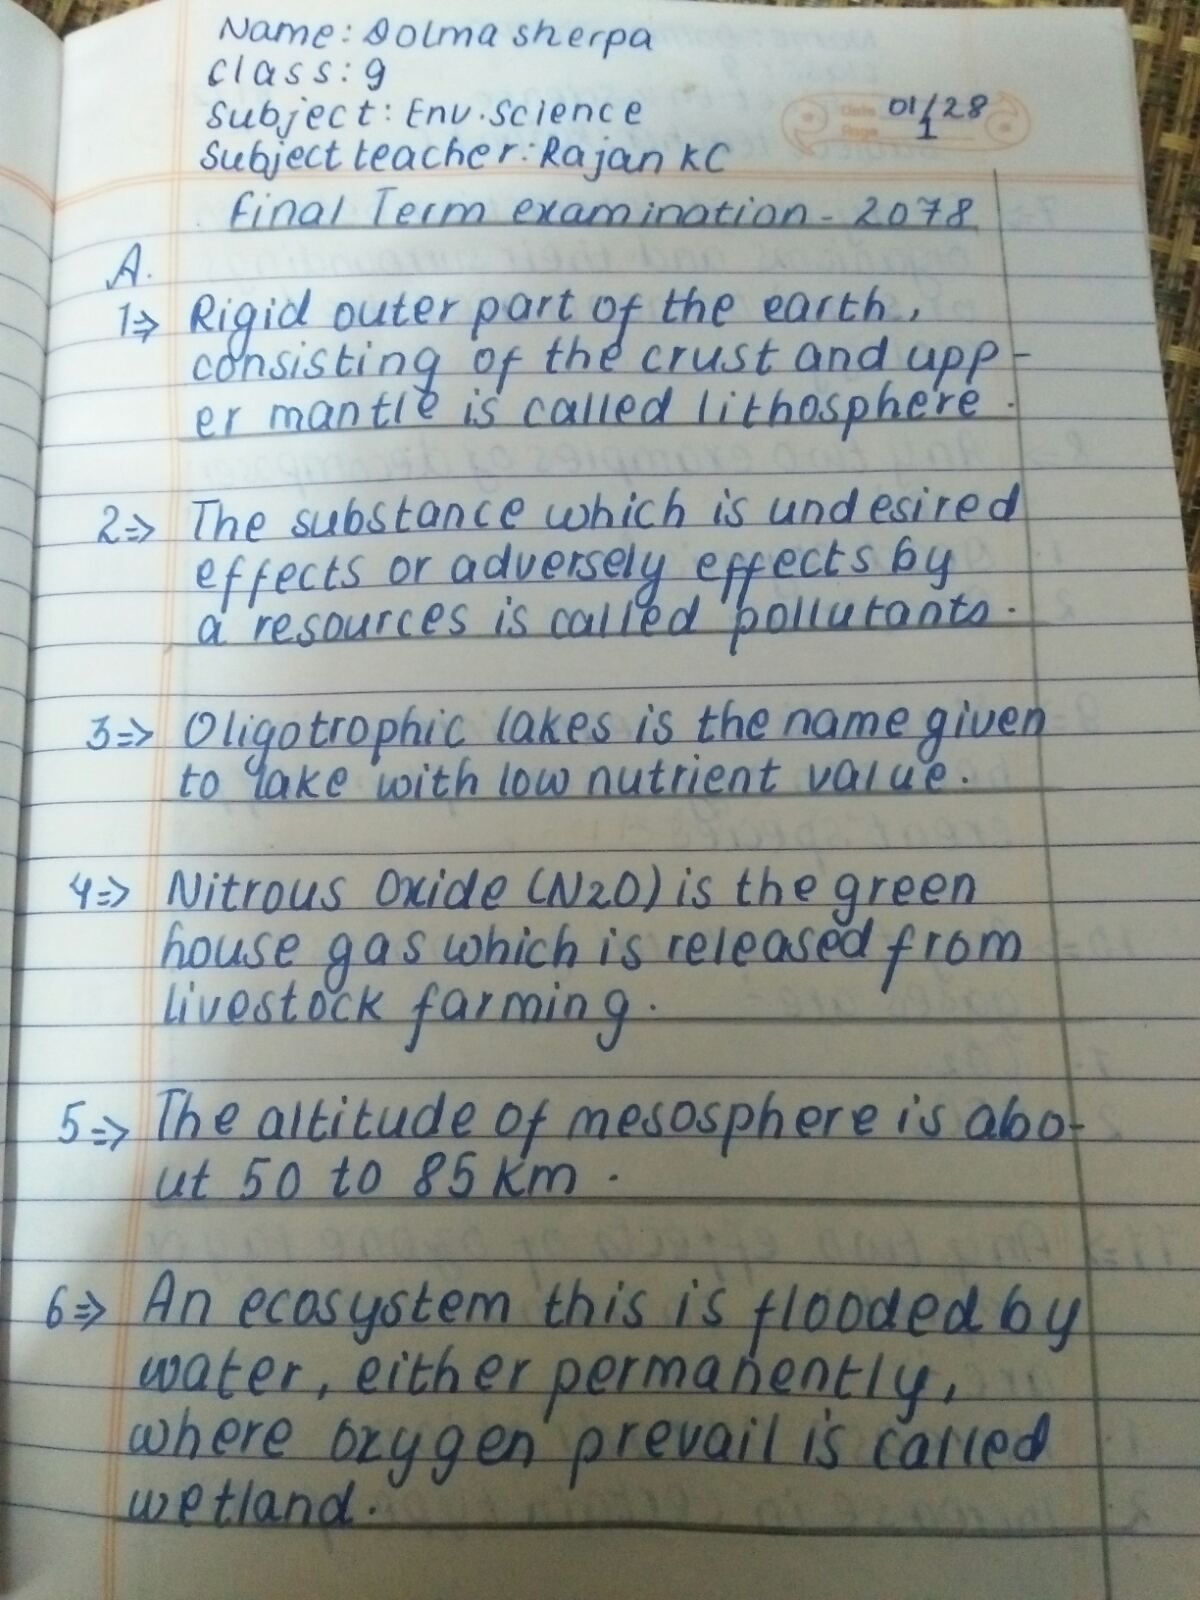 Name: Dolma sherpa
class: 9
Subject: Env.science
Date 01/28
Page 1
Subject teacher: Rajan KC
final Term examination - 2078
A.
1⇒ Rigid outer part of the earth,
consisting of the crust and upp-
er mantle is called lithosphere.
2⇒ The substance which is undesired
effects or adversely effects by
a resources is called pollutants.
3⇒ Oligotrophic lakes is the name given
to lake with low nutrient value.
4⇒ Nitrous Oxide (N2O) is the green
house gas which is released from
livestock farming.
5⇒ The altitude of mesosphere is abo-
ut 50 to 85 km.
6⇒ An ecosystem this is flooded by
water, either permanently,
where oxygen prevail is called
wetland.